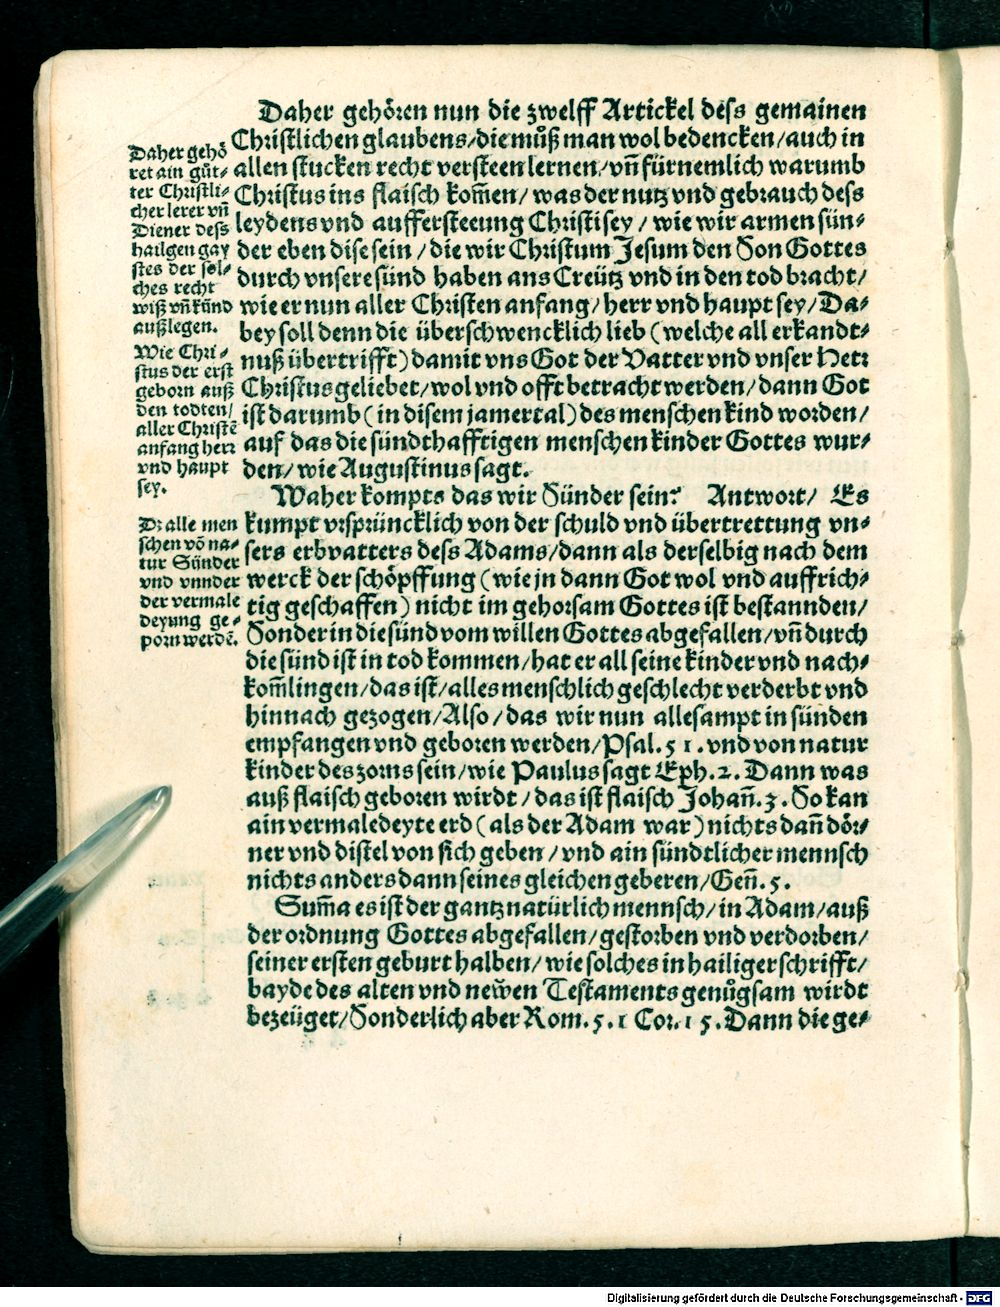 Daher gehören nun die zwelff Artickel dess gemainen
Christlichen glaubens/die můß man wol bedencken/auch in
allen stucken recht versteen lernen/vn̄ fürnemlich warumb
Christus ins flaisch kom̄en/was der nutz vnd gebrauch dess
leydens vnd auffersteeung Christi sey/wie wir armen sün-
der eben dise sein/die wir Christum Jesum den Son Gottes
durch vnsere sünd haben ans Creütz vnd in den tod bracht/
wie er nun aller Christen anfang/herr vnd haupt sey/Da-
bey soll denn die überschwencklich lieb (welche all erkandt-
nuß übertrifft) damit vns Got der Vatter vnd vnser Herr
Christus geliebet/wol vnd offt betracht werden/dann Got
ist darumb (in disem jamertal) des menschen kind worden/
auf das die sündthafftigen menschen kinder Gottes wur-
den/wie Augustinus sagt.
Daher gehö
ret ain gůt-
ter Christli-
cher lerer vn̄
Diener dess
hailgen gay
stes der sol-
ches recht
wiß vn̄ künd
außlegen.
Wie Chri-
stus der erst
geborn auß
den todten/
aller Christē
anfang herr
vnd haupt
sey.
Waher kompts das wir Sünder sein? Antwort/Es
kumpt vrsprüncklich von der schuld vnd übertrettung vn-
sers erbvatters dess Adams/dann als derselbig nach dem
werck der schöpffung (wie jn dann Got wol vnd auffrich-
tig geschaffen) nicht im gehorsam Gottes ist bestannden/
Sonder in die sünd vom willen Gottes abgefallen/vn̄ durch
die sünd ist in tod kommen/hat er all seine kinder vnd nach-
kom̄lingen/das ist/alles menschlich geschlecht verderbt vnd
hinnach gezogen/Also/das wir nun allesampt in sünden
empfangen vnd geboren werden/Psal.51.vnd von natur
kinder des zorns sein/wie Paulus sagt Eph.2. Dann was
auß flaisch geboren wirdt/das ist flaisch Johan̄.3. So kan
ain vermaledeyte erd (als der Adam war) nichts dan̄ dör-
ner vnd distel von sich geben/vnd ain sündtlicher mennsch
nichts anders dann seines gleichen geberen/Gen̄.5.
Dz alle men
schen vō na-
tur Sünder
vnd vnnder
der vermale
deyung ge-
porn werdē.
Sum̄a es ist der gantz natürlich mennsch/in Adam/auß
der ordnung Gottes abgefallen/gestorben vnd verdorben/
seiner ersten geburt halben/wie solches in hailiger schrifft/
bayde des alten vnd newen Testaments genůgsam wirdt
bezeüget/Sonderlich aber Rom.5.1 Cor.15. Dann die ge-
Digitalisierung gefördert durch die Deutsche Forschungsgemeinschaft - DFG